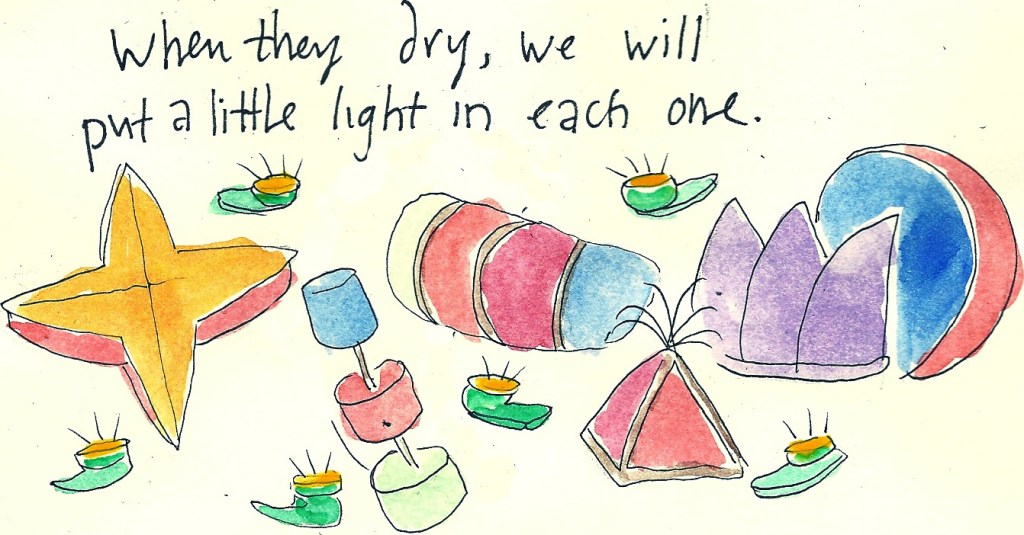 When they dry, we will
put a little light in each one.